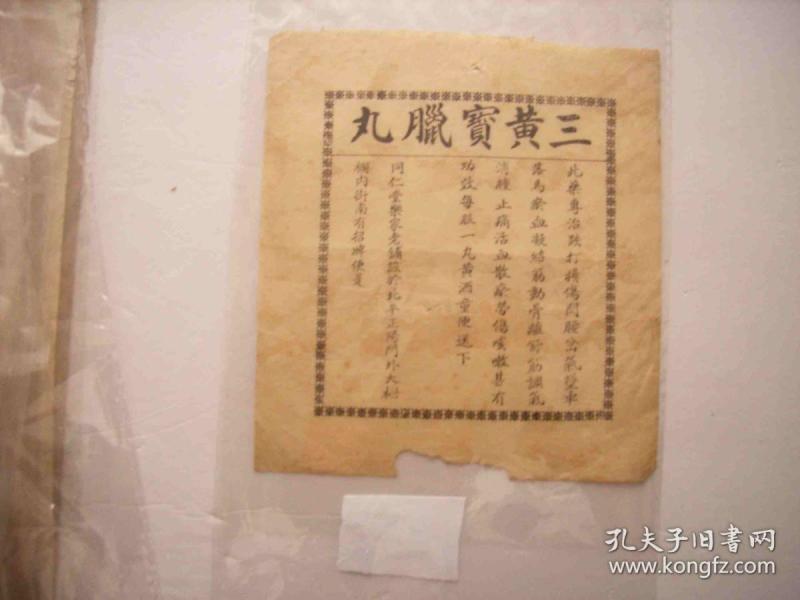 三黄寳臘丸
此藥專治跌打損傷閃腰岔氣墜車
落馬瘀血凝結筋動骨離舒筋調氣
消腫止痛活血散瘀勞傷咳嗽甚有
功效每服一丸黄酒童便送下
同仁堂樂家老舖設於北平正陽門外大栅
欄内街南有招牌便是
孔夫子旧书网
www.kongfz.com